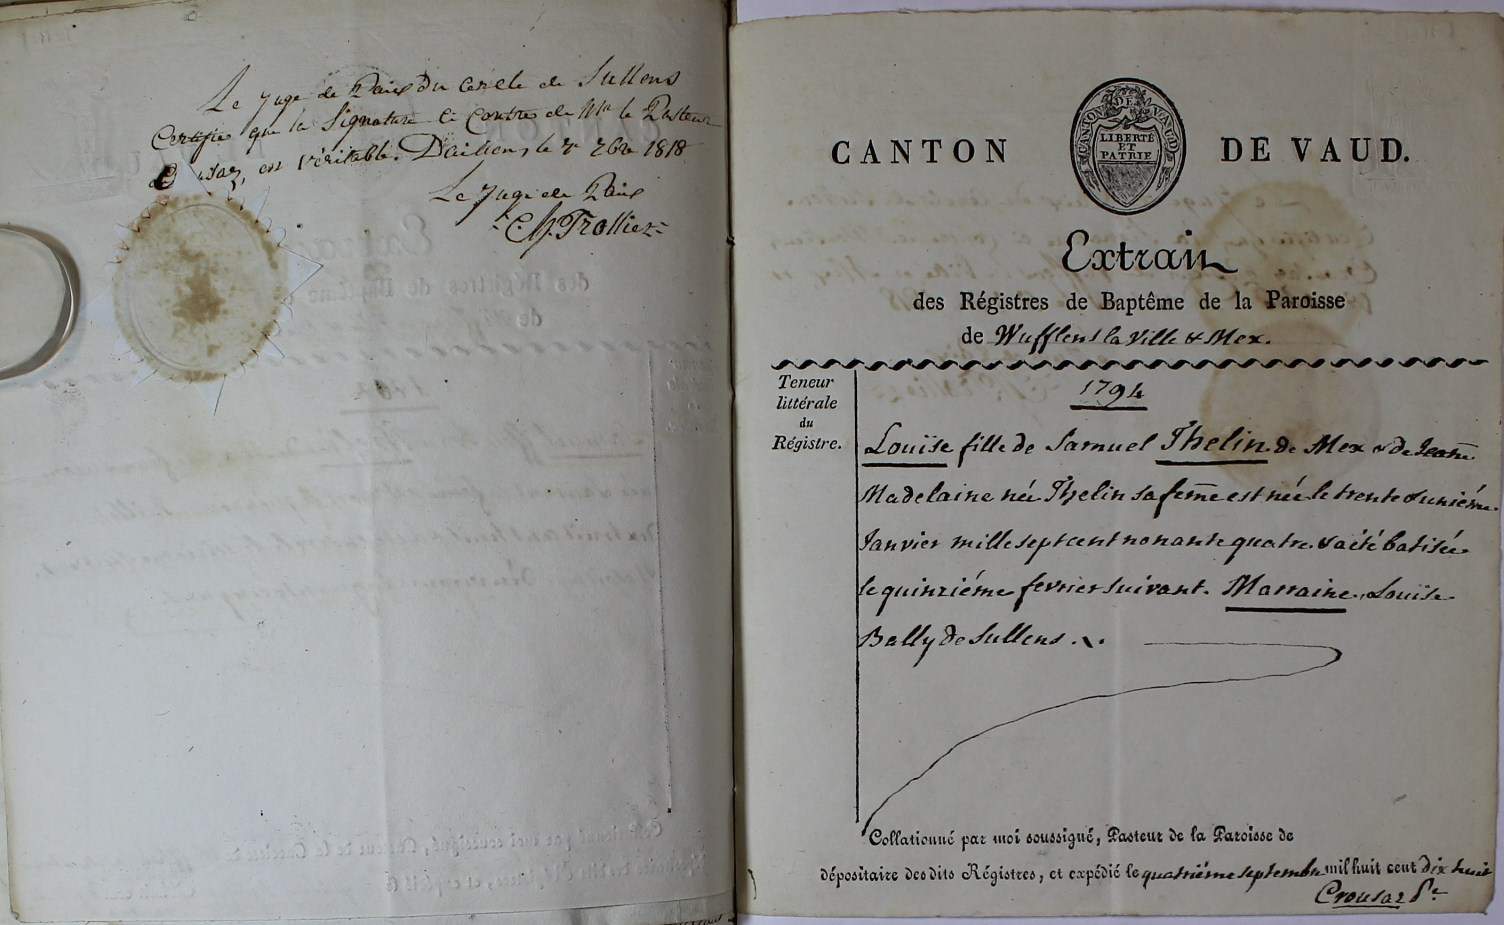 Le Juge de Paix du Cercle de Sullens
Certifie que la Signature ci contre de Mr le Pasteur
est véritable. Daillens, le 7bre 1818
Le Juge de Paix
Trolliez
CANTON DE VAUD.
CANTON DE VAUD
LIBERTÉ
ET
PATRIE
Extrait
des Régistres de Baptême de la Paroisse
de Wufflens la Ville & Mex.
Teneur
littérale
du
Régistre.
1794
Louïse fille de Samuel Thelin de Mex & de Jeanne
Madelaine née Thelin sa femme est née le trente & uniéme
Janvier mille sept cent nonante quatre & a été batisée
le quinziéme fevrier suivant. Marraine, Louïse
Bally de Sullens.
Collationné par moi soussigné, Pasteur de la Paroisse de
dépositaire des dits Régistres, et expédié le quatriéme septembre mil huit cent dix huit
Crousaz Pr